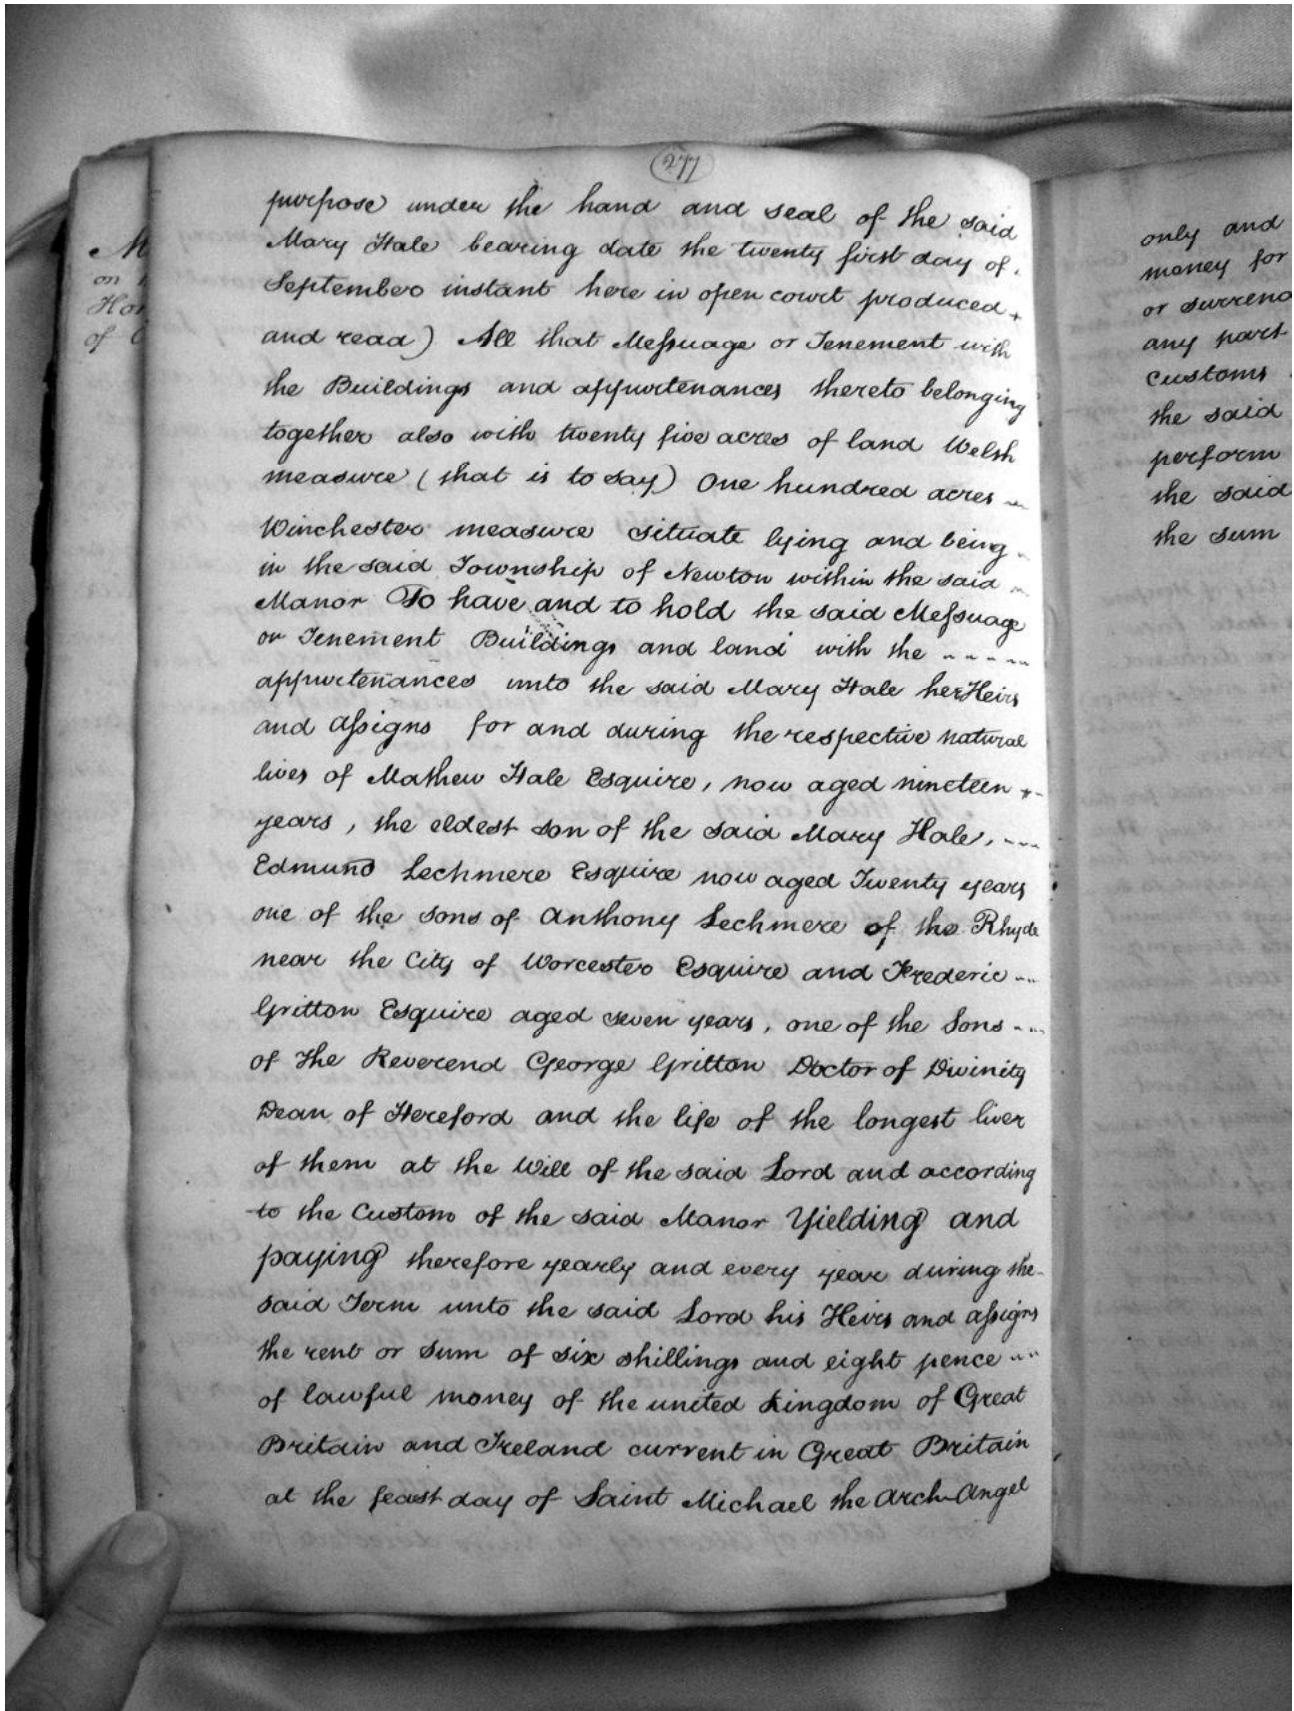 277
purpose under the hand and seal of the said
Mary Hale bearing date the twenty first day of
September instant here in open court produced
and read) All that Messuage or Tenement with
the Buildings and appurtenances thereto belonging
together also with twenty five acres of land Welsh
measure (that is to say) One hundred acres
Winchester measure situate lying and being
in the said Township of Newton within the said
Manor To have and to hold the said Messuage
or Tenement Buildings and land with the
appurtenances unto the said Mary Hale her Heirs
and Assigns for and during the respective natural
lives of Mathew Hale Esquire, now aged nineteen
years, the eldest son of the said Mary Hale,
Edmund Lechmere Esquire now aged Twenty years
one of the sons of Anthony Lechmere of the Rhyde
near the City of Worcester Esquire and Frederic
Gritton Esquire aged seven years, one of the Sons
of the Reverend George Gritton Doctor of Divinity
Dean of Hereford and the life of the longest liver
of them at the Will of the said Lord and according
to the Custom of the said Manor Yielding and
paying therefore yearly and every year during the
said Term unto the said Lord his Heirs and assigns
the rent or Sum of six shillings and eight pence
of lawful money of the united Kingdom of Great
Britain and Ireland current in Great Britain
at the feast day of Saint Michael the Arch-Angel
M
on
of
only and
money for
or
any part
customs
the said
perform
the said
the sum